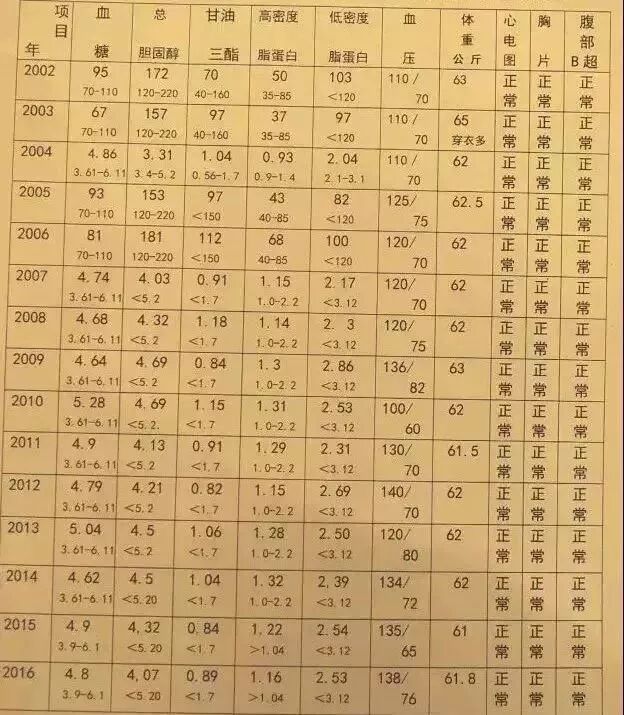 项目 血 总 甘油 高密度 低密度 血 体重 心电图 胸片 腹部B超
年 糖 胆固醇 三酯 脂蛋白 脂蛋白 压 公斤
2002 95 172 70 50 103 110/ 63 正 正 正
70-110 120-220 40-160 35-85 <120 70 常 常 常
2003 67 157 97 37 97 110/ 65 正 正 正
70-110 120-220 40-160 35-85 <120 70 穿衣多 常 常 常
2004 4.86 3.31 1.04 0.93 2.04 110/ 62 正 正 正
3.61-6.11 3.4-5.2 0.56-1.7 0.9-1.4 2.1-3.1 70 常 常 常
2005 93 153 97 43 82 125/ 62.5 正 正 正
70-110 120-220 <150 40-85 <120 75 常 常 常
2006 81 181 112 68 100 120/ 62 正 正 正
70-110 120-220 <150 40-85 <120 70 常 常 常
2007 4.74 4.03 0.91 1.15 2.17 120/ 62 正 正 正
3.61-6.11 <5.2 <1.7 1.0-2.2 <3.12 70 常 常 常
2008 4.68 4.32 1.18 1.14 2. 3 120/ 62 正 正 正
3.61-6.11 <5.2 <1.7 1.0-2.2 <3.12 75 常 常 常
2009 4.64 4.69 0.84 1.3 2.86 136/ 63 正 正 正
3.61-6.11 <5.2 <1.7 1.0-2.2 <3.12 82 常 常 常
2010 5.28 4.69 1.15 1.31 2.53 100/ 62 正 正 正
3.61-6.11 <5.2. <1.7 1.0-2.2 <3.12 60 常 常 常
2011 4.9 4.13 0.91 1.29 2.31 130/ 61.5 正 正 正
3.61-6.11 <5.2 <1.7 1.0-2.2 <3.12 70 常 常 常
2012 4.79 4.21 0.82 1.15 2.69 140/ 62 正 正 正
3.61-6.11 <5.2 <1.7 1.0-2.2 <3.12 70 常 常 常
2013 5.04 4.5 1.06 1.28 2.50 120/ 62 正 正 正
3.61-6.11 <5.2 <1.7 1.0-2.2 <3.12 80 常 常 常
2014 4.62 4.5 1.04 1.32 2,39 134/ 62 正 正 正
3.61-6.11 <5.20 <1.7 1.0-2.2 <3.12 72 常 常 常
2015 4.9 4,32 0.84 1.22 2.54 135/ 61 正 正 正
3.9-6.1 <5.20 <1.7 >1.04 <3.12 65 常 常 常
2016 4.8 4,07 0.89 1.16 2.53 138/ 61.8 正 正 正
3.9-6.1 <5.20 <1.7 >1.04 <3.12 76 常 常 常